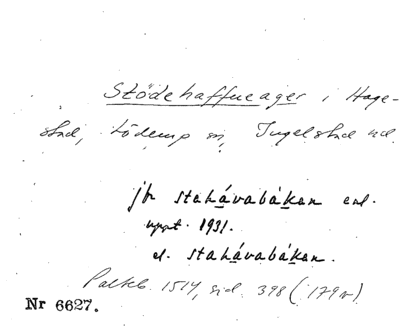 Stödehaffueager i Hage-
stad, Löderup sn, Ingelstad hd.
jfr stahávabákan enl.
uppt. 1931.
el. stahávabákan.
Palteb. 1514, sid. 398 (179v)
Nr 6627.